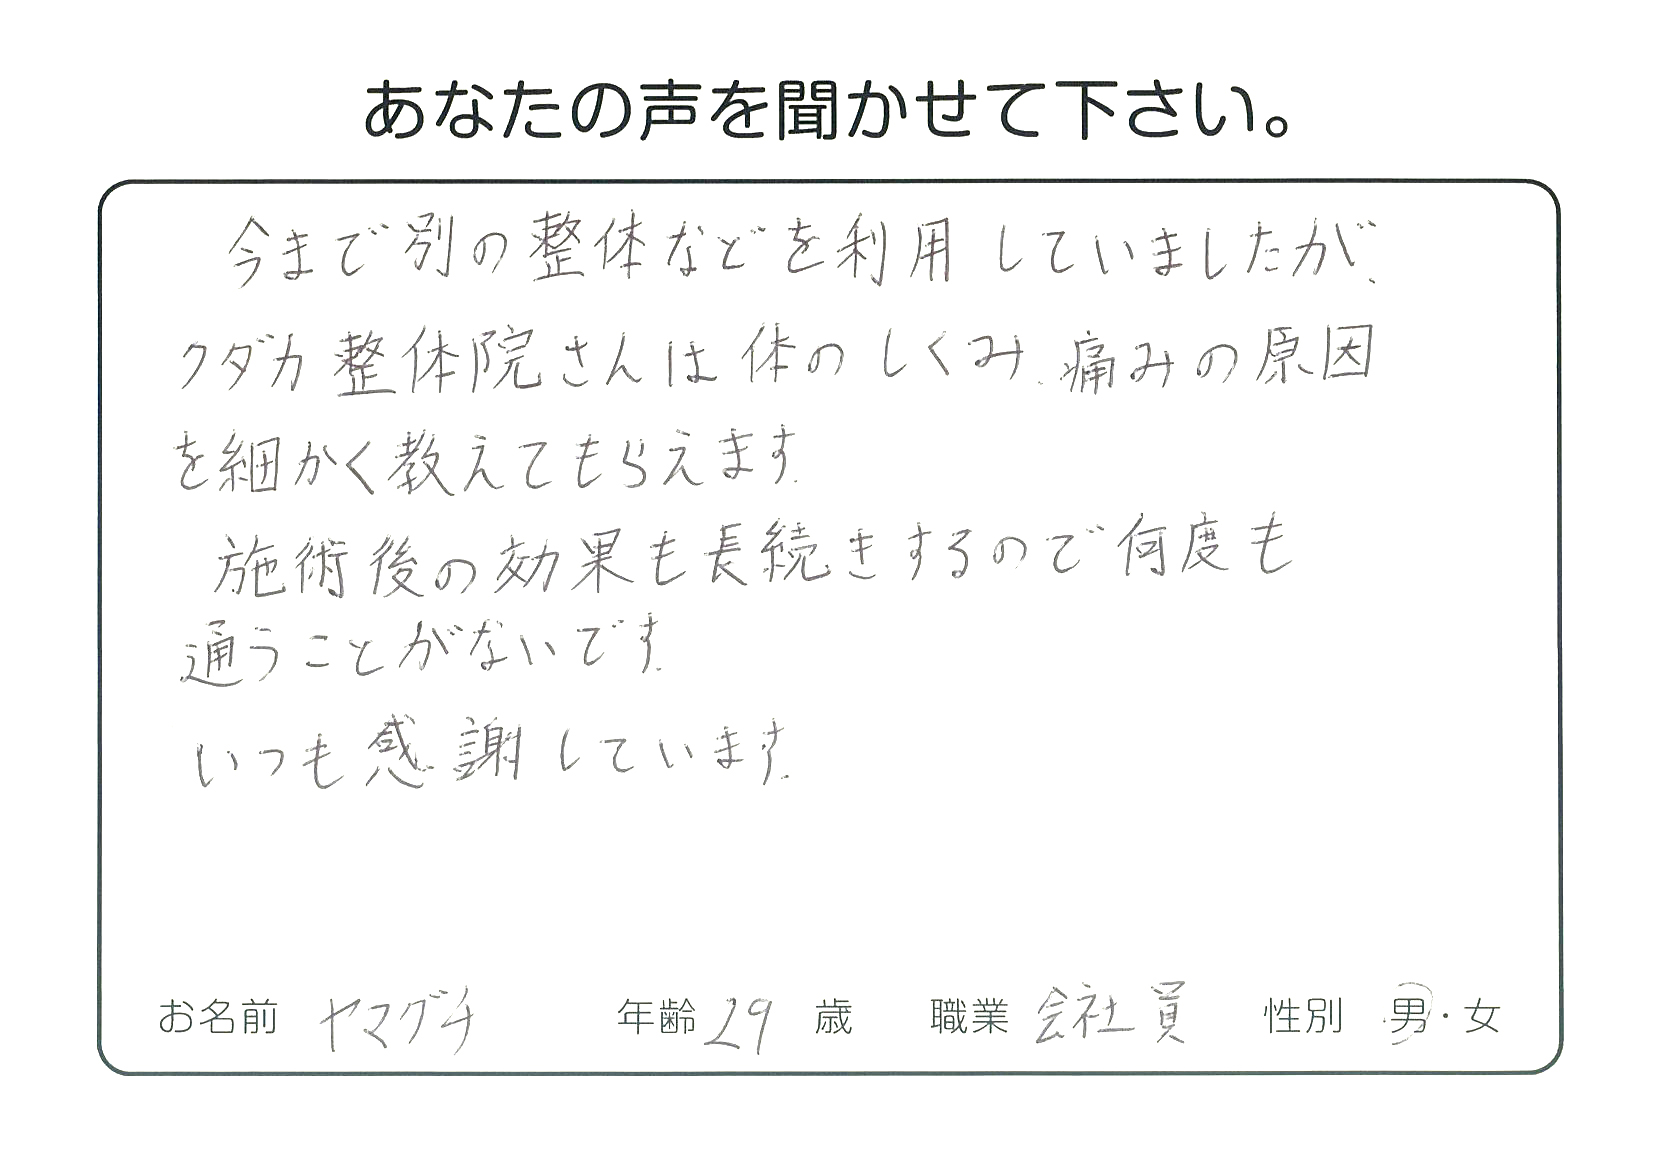 あなたの声を聞かせて下さい。
今まで別の整体などを利用していましたが、
クダカ整体院さんは体のしくみ、痛みの原因
を細かく教えてもらえます。
施術後の効果も長続きするので何度も
通うことがないです。
いつも感謝しています。
お名前 ヤマグチ 年齢 29 歳 職業 会社員 性別 男・女